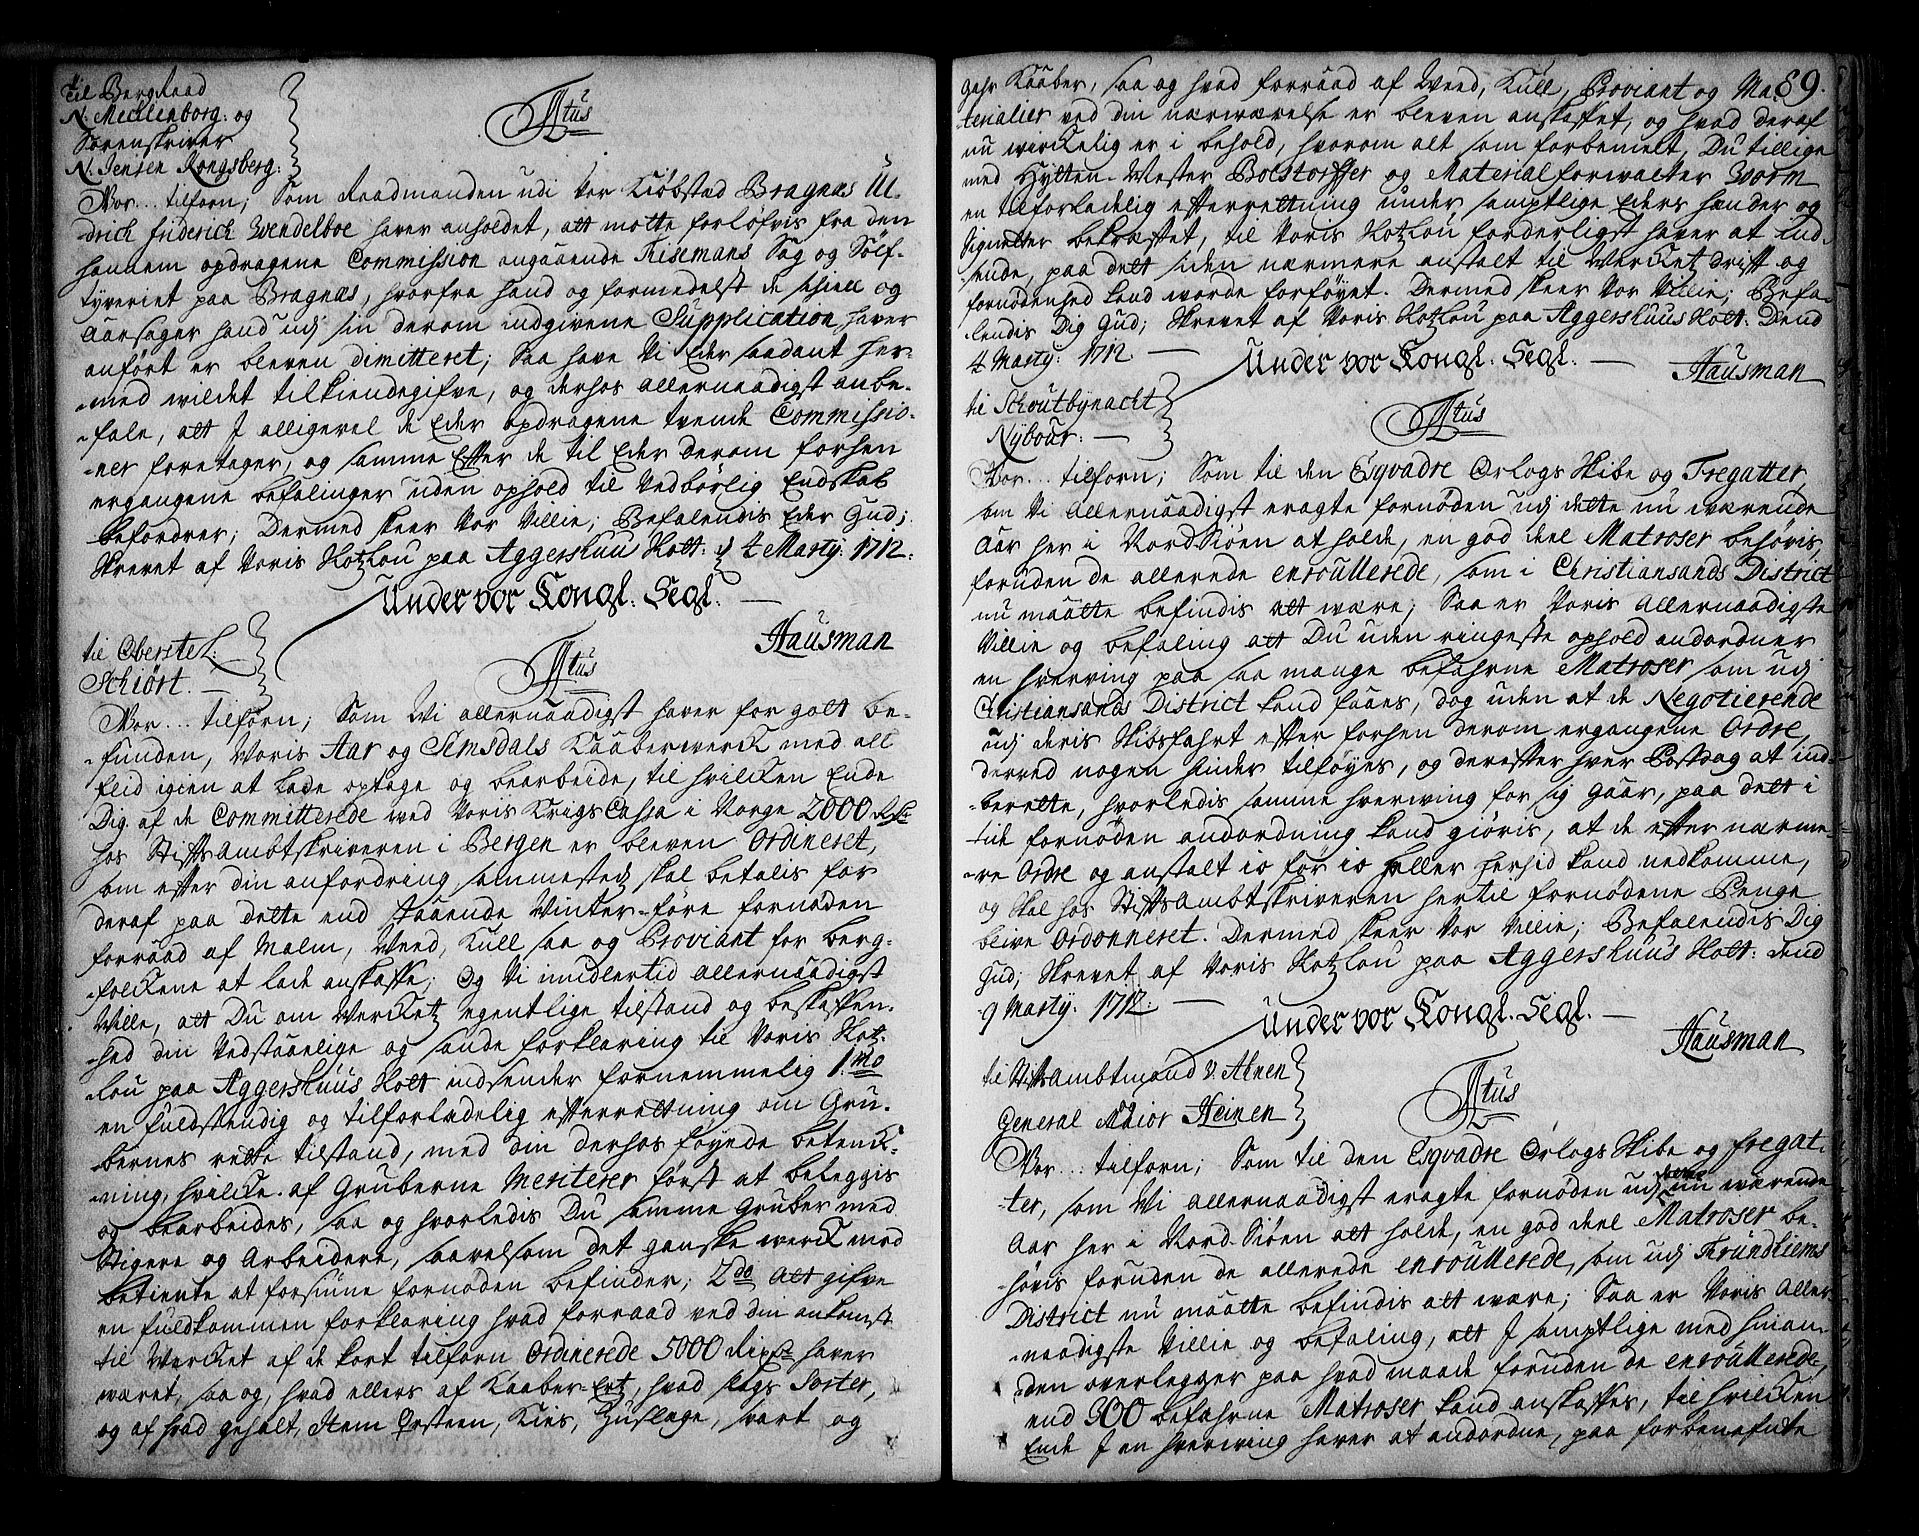 Til BergRaad
N. Mechlenborg: og
Sorenskriver
N. Jensen Kongsberg:
F4tus
Vor... tilforn; Som Raadmanden udi Vor Kiöbstad Bragnæs Ul-
drich friderich Wendelboe haver anholdet, att motte forløfvis fra den
hannem opdragene Commission angaaende Risemans Sag og Sølf-
tyveriet paa Bragnæs, hvorfra hand og formedelst de skiell og
Aarsager hand udj sin derom indgivene Supplication, haver
anført er bleven dimitteret; Saa have Vi Eder saadant her-
-med villdet tilkiendegifve, og derhos allernaadigst anbe-
-fale, att I alligevel de Eder opdragene tvende Commissio-
-ner foretager, og samme Efter de til Eder derom forhen
ergangene befalinger uden ophold til Vedbørlig Endskab
befordrer; Dermed skeer Vor Villie; Befalendis Eder Gud;
Skrevet af Voris Slotzlou paa Aggershuus Slott: d 4 Martÿ: 1712:
Under vor Kongl: Segl:
Hausman
til Oberste L:
Schiört.
F4tus
Vor... tilforn; Som Vi allernaadigst haver for gott be-
-funden, Voris Aar og Semsdals Kaaberwerck med all
fliid igien at lade optage og bearbeide, til hvilcken Ende
Dig af de Committerede ved Voris Krigs Cassa i Norge 2000 Rdr
hos Stifts Ambtskriveren i Bergen er bleven Ordineret,
som efter din anfordring sammesteds skal betalis for
deraf paa dette end staaende Winter-føre fornøden
forraad af Malm, Veed, Kull saa og Proviant for berg-
-folckene at lade anskaffe; Og Vi imidlertid allernaadigst
Ville, att Du om Vercketz egentlige tilstand og beskaffen-
-hed din Vedstaaelige og sande forklaring til Voris Slotz-
-lou paa Aggershuus Slott indsender fornemmelig 1mo
en fuldstendig og tilforladelig efterretning om Gru-
-bernes rette tilstand, med din derhos føyede betenck-
-ning, hvilcke af Gruberne meriterer først at beleggis
og bearbeides, saa og hvorledis Du samme Gruber med
Stigere og Arbeidere, saavelsom det ganske werck med
betiente at forsiune fornøden befinder; 2do Att gifve
en fuldkommen forklaring hvad forraad ved din ankomst
til Wercket af de kort tilforn Ordinerede 5000 Rixdr haver
wæret, saa og, hvad ellers af Kaaber-Ertz, hvad slags Sorter,
og af hvad gehalt, Item Kies, sort og
gahr Kaaber, saa og hvad forraad af Weed, Kull, Proviant og Ma- 89.
terialier ved din nærwærelse er bleven anskaffet, og hvad deraf
nu wirckelig er i behold, hvorom alt som forbemelt, Du tillige
med Hytten-Mester Bolstorffer og Materialforwalter Worm
en tilforladelig efterretning under samptlige Eders hænder og
Signetter bekræftet, til Voris Slotzlou forderligst haver at ind-
sende, paa dett siden nærmere anstalt til Werckets drift og
fornødenhed kand worde forføyet. Dermed skeer Vor Villie; Befa-
-lendis Dig Gud; Skrevet af Voris Slotzlou paa Aggershuus Slott: Dend
4 Martÿ: 1712
Under vor Kongl: Segl:
Hausman
til Schoutbynacht
Nybour:
F4tus
Vor... tilforn; Som til den Esqvadre Orlogs Skibe og Fregatter
som Vi Allernaadigst eragte fornøden udj dette nu wærende
Aar her i NordSiöen at holde, en god deel Matroser behøvis,
foruden de allerede enroullerede, som i Christiansands District
nu maatte befindis att wære; Saa er Voris Allernaadigste
Villie og befaling att Du uden ringeste ophold andordner
en hverving paa saa mange befahrne Matroser som udj
Christiansands District kand faaes, dog uden at de Negotierende
udj deris Skibsfahrt efter forhen derom ergangene Ordre,
derved nogen hinder tilføyes, og derefter hver Postdag at ind-
-berette, hvorledis samme hverving for sig gaar, paa dett i
tide fornøden andordning kand giøris, at de efter nærme-
-re Ordre og anstalt io før io heller herhid kand nedkomme,
og skal hos StiftsAmbtskriveren hertil fornødene Penge
blive Ordonneret. Dermed skeer Vor Villie; Befalendis Dig
Gud; Skrevet af Voris Slotzlou paa Aggershuus Slott: Dend
9 Martÿ: 1712:
Under vor Kongl: Segl:
Hausman
til StiftsAmbtmand v. Ahnen
General Maior Heinen
F4tus
Vor... tilforn; Som til den Esqvadre Orlogs Skibe og fregat-
-ter, som Vi allernaadigst eragte fornøden udj dette nu wærende
Aar her i Nord-Siöen att holde, en god deel Matroser be-
-høvis foruden de allerede enroullerede, som udj Trundhiems
District nu maatte befindis att wære; Saa er Voris Aller-
-naadigste Villie og befaling, att I samptlige med hinan-
-den overlegger paa hvad maade foruden de enroullerede,
end 300 befahrne Matroser kand anskaffes, til hvilcken
Ende I en hverving haver at andordne, paa forbenefnte